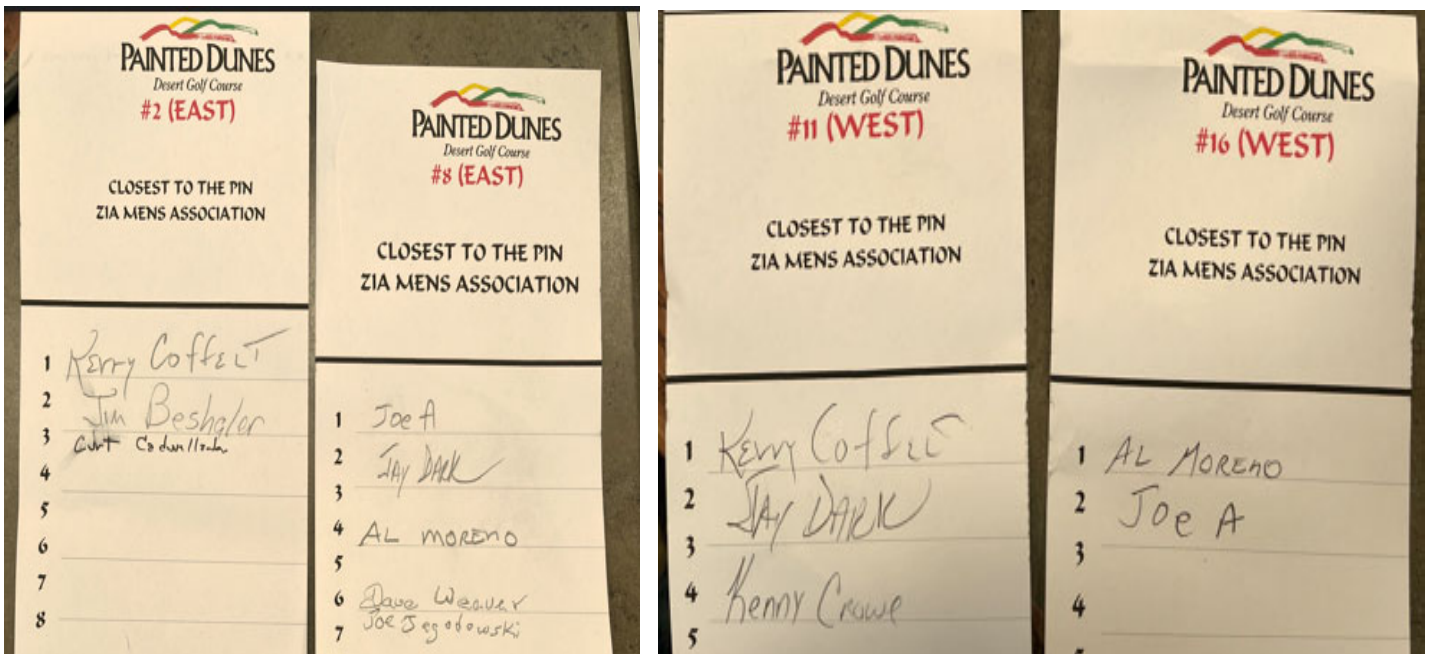 PAINTED DUNES
Desert Golf Course
#2 (EAST)
CLOSEST TO THE PIN
ZIA MENS ASSOCIATION
1 Kerry Coffelt
2 Jim Beshaler
3 Curt
4
5
6
7
8
PAINTED DUNES
Desert Golf Course
#8 (EAST)
CLOSEST TO THE PIN
ZIA MENS ASSOCIATION
1 Joe A
2 JAY DARK
3
4 AL MORENO
5
6 Dave Weaver
7 Joe Jagodowski
PAINTED DUNES
Desert Golf Course
#11 (WEST)
CLOSEST TO THE PIN
ZIA MENS ASSOCIATION
1 Kerry Coffelt
2 JAY DARK
3
4 Kenny Crowe
5
PAINTED DUNES
Desert Golf Course
#16 (WEST)
CLOSEST TO THE PIN
ZIA MENS ASSOCIATION
1 AL MORENO
2 Joe A
3
4